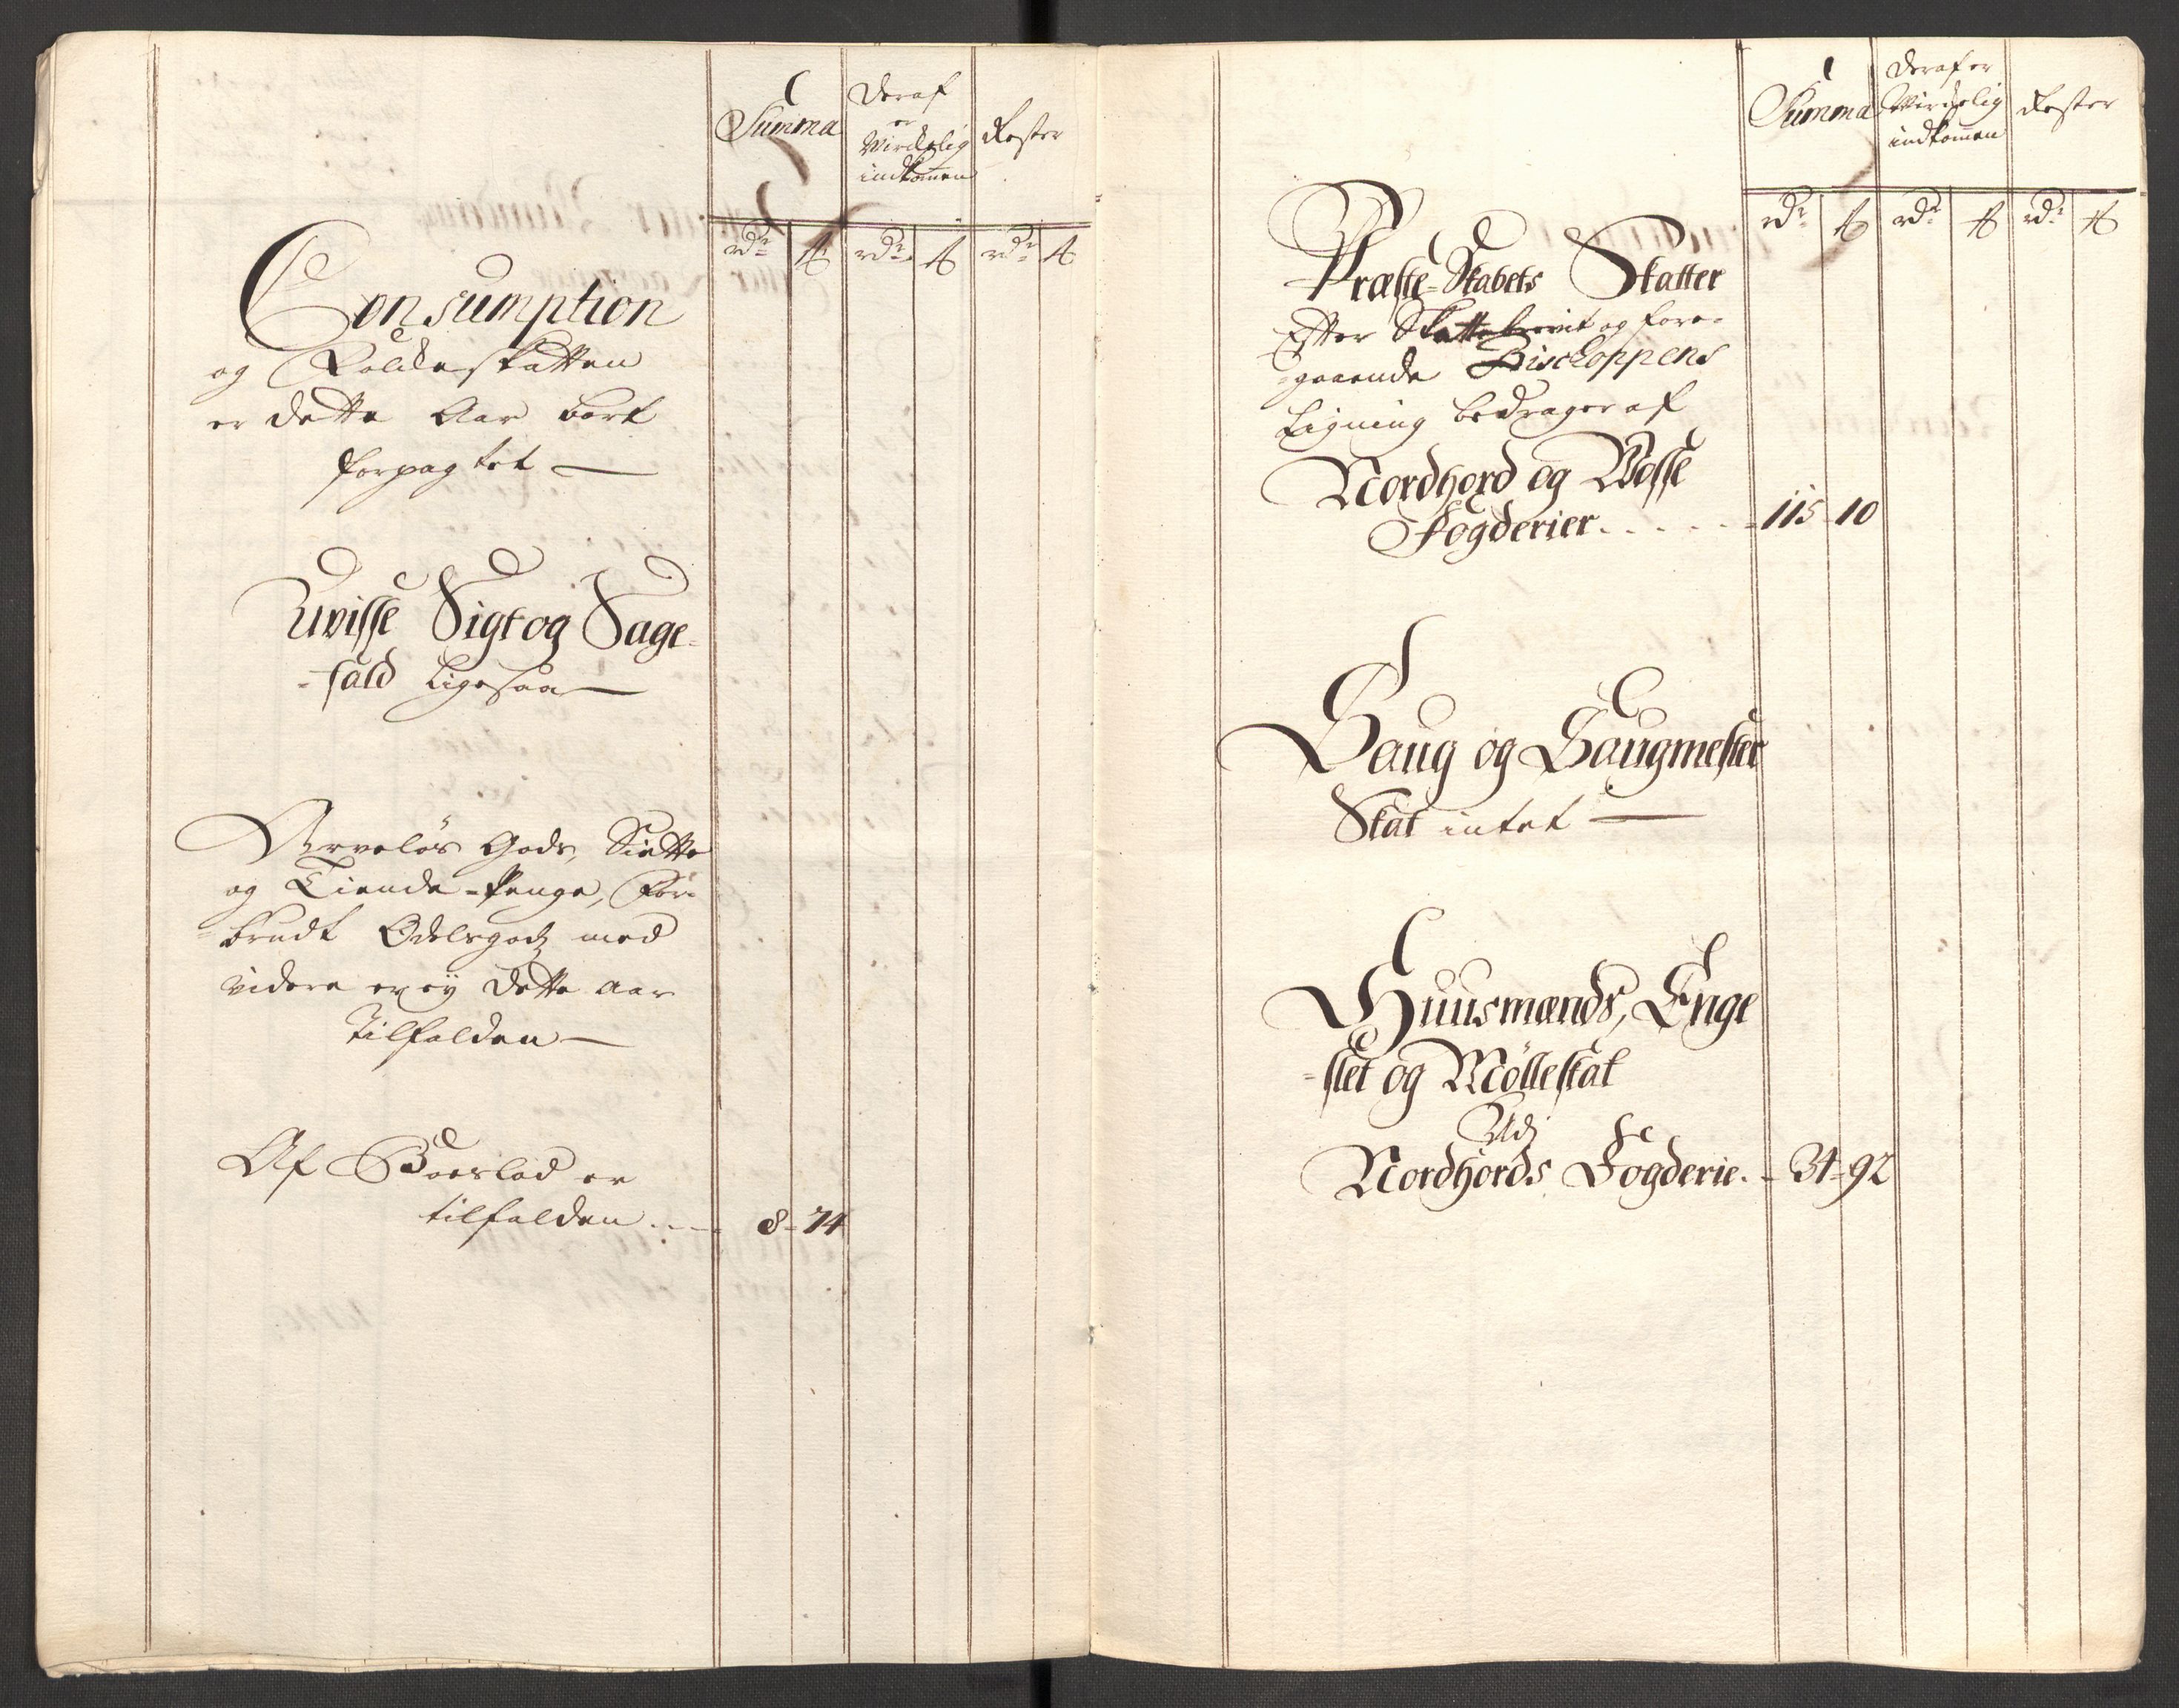 Summa
Deraf
er
Virckelig
indkommen
Rester
rdr ß rdr ß rdr ß
Consumption
og Folckeskatten
er dette Aar bort
forpagtet —
Uvisse Sigt og Sage-
-fald Ligesaa —
Arveløs Gods, Siette
og Tiende-Penge, For-
-brudt Odelsgodz med
videre er ey dette Aar
tilfalden —
Af Boeslod er
tilfalden . . . 8 - 74
Summa
Deraf er
Virckelig
indkommen
Rester
rdr ß rdr ß rdr ß
Præste-Skabets Skatter
Efter Skattebrevit og fore-
-gaaende Bischoppens
Ligning bedrager af
Nordhord og Wosse
Fogderier . . . . . 115 - 10
Saug og Saugmester
Skat intet —
Huusmænds, Enge
-slet og Mølleskat
Udj
Nordhords Fogderie . - 34 - 92